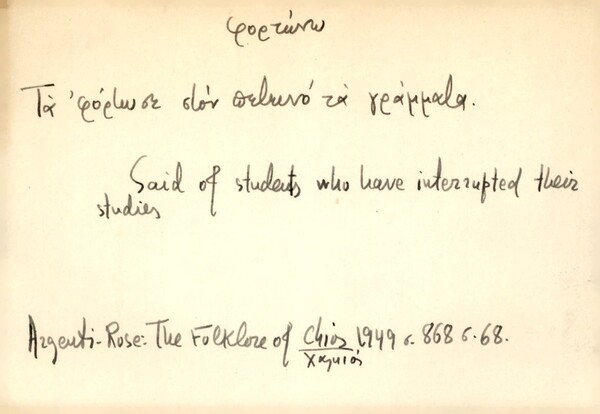 φορτώνω
Τὰ 'φόρτωσε στόν πετεινό τὰ γράμματα.
Said of students who have interrupted their
studies
Argenti-Rose: The Folklore of Chios 1949 σ. 868 σ. 68.